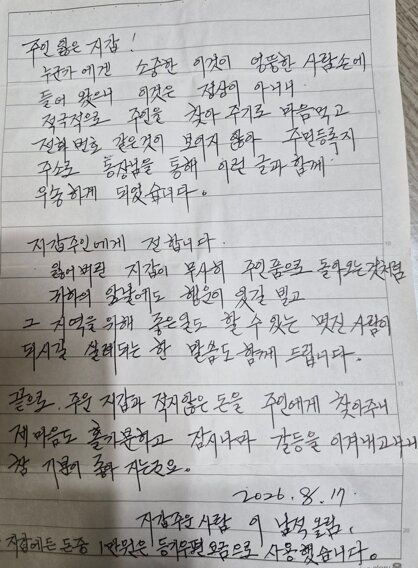 주인 잃은 지갑!
누군가에겐 소중한 이것이 엉뚱한 사람손에
들어 왔으니 이것은 정상이 아니니
적극적으로 주인을 찾아 주기로 마음먹고
전화 번호 같은것이 보이지 않아 주민등록지
주소로 통장님을 통해 이런 글과 함께
우송하게 되었습니다.
지갑주인에게 전합니다.
잃어버린 지갑이 무사히 주인품으로 돌아오는것처럼
귀하의 앞날에도 행운이 있길 빌고
그 지역을 위해 좋은일도 할 수 있는 멋진 사람이
되시길 실례되는 한 말씀도 함께 드립니다.
끝으로, 주운 지갑과 적지않은 돈을 주인에게 찾아주니
제 마음도 홀가분하고 잠시나마 갈등을 이겨내고나니
참 기분이 좋아 지는군요.
2026. 8. 17.
지갑주운 사람 이 남석 올림.
지갑에든 돈중 1만원은 등기우편 요금으로 사용했습니다.